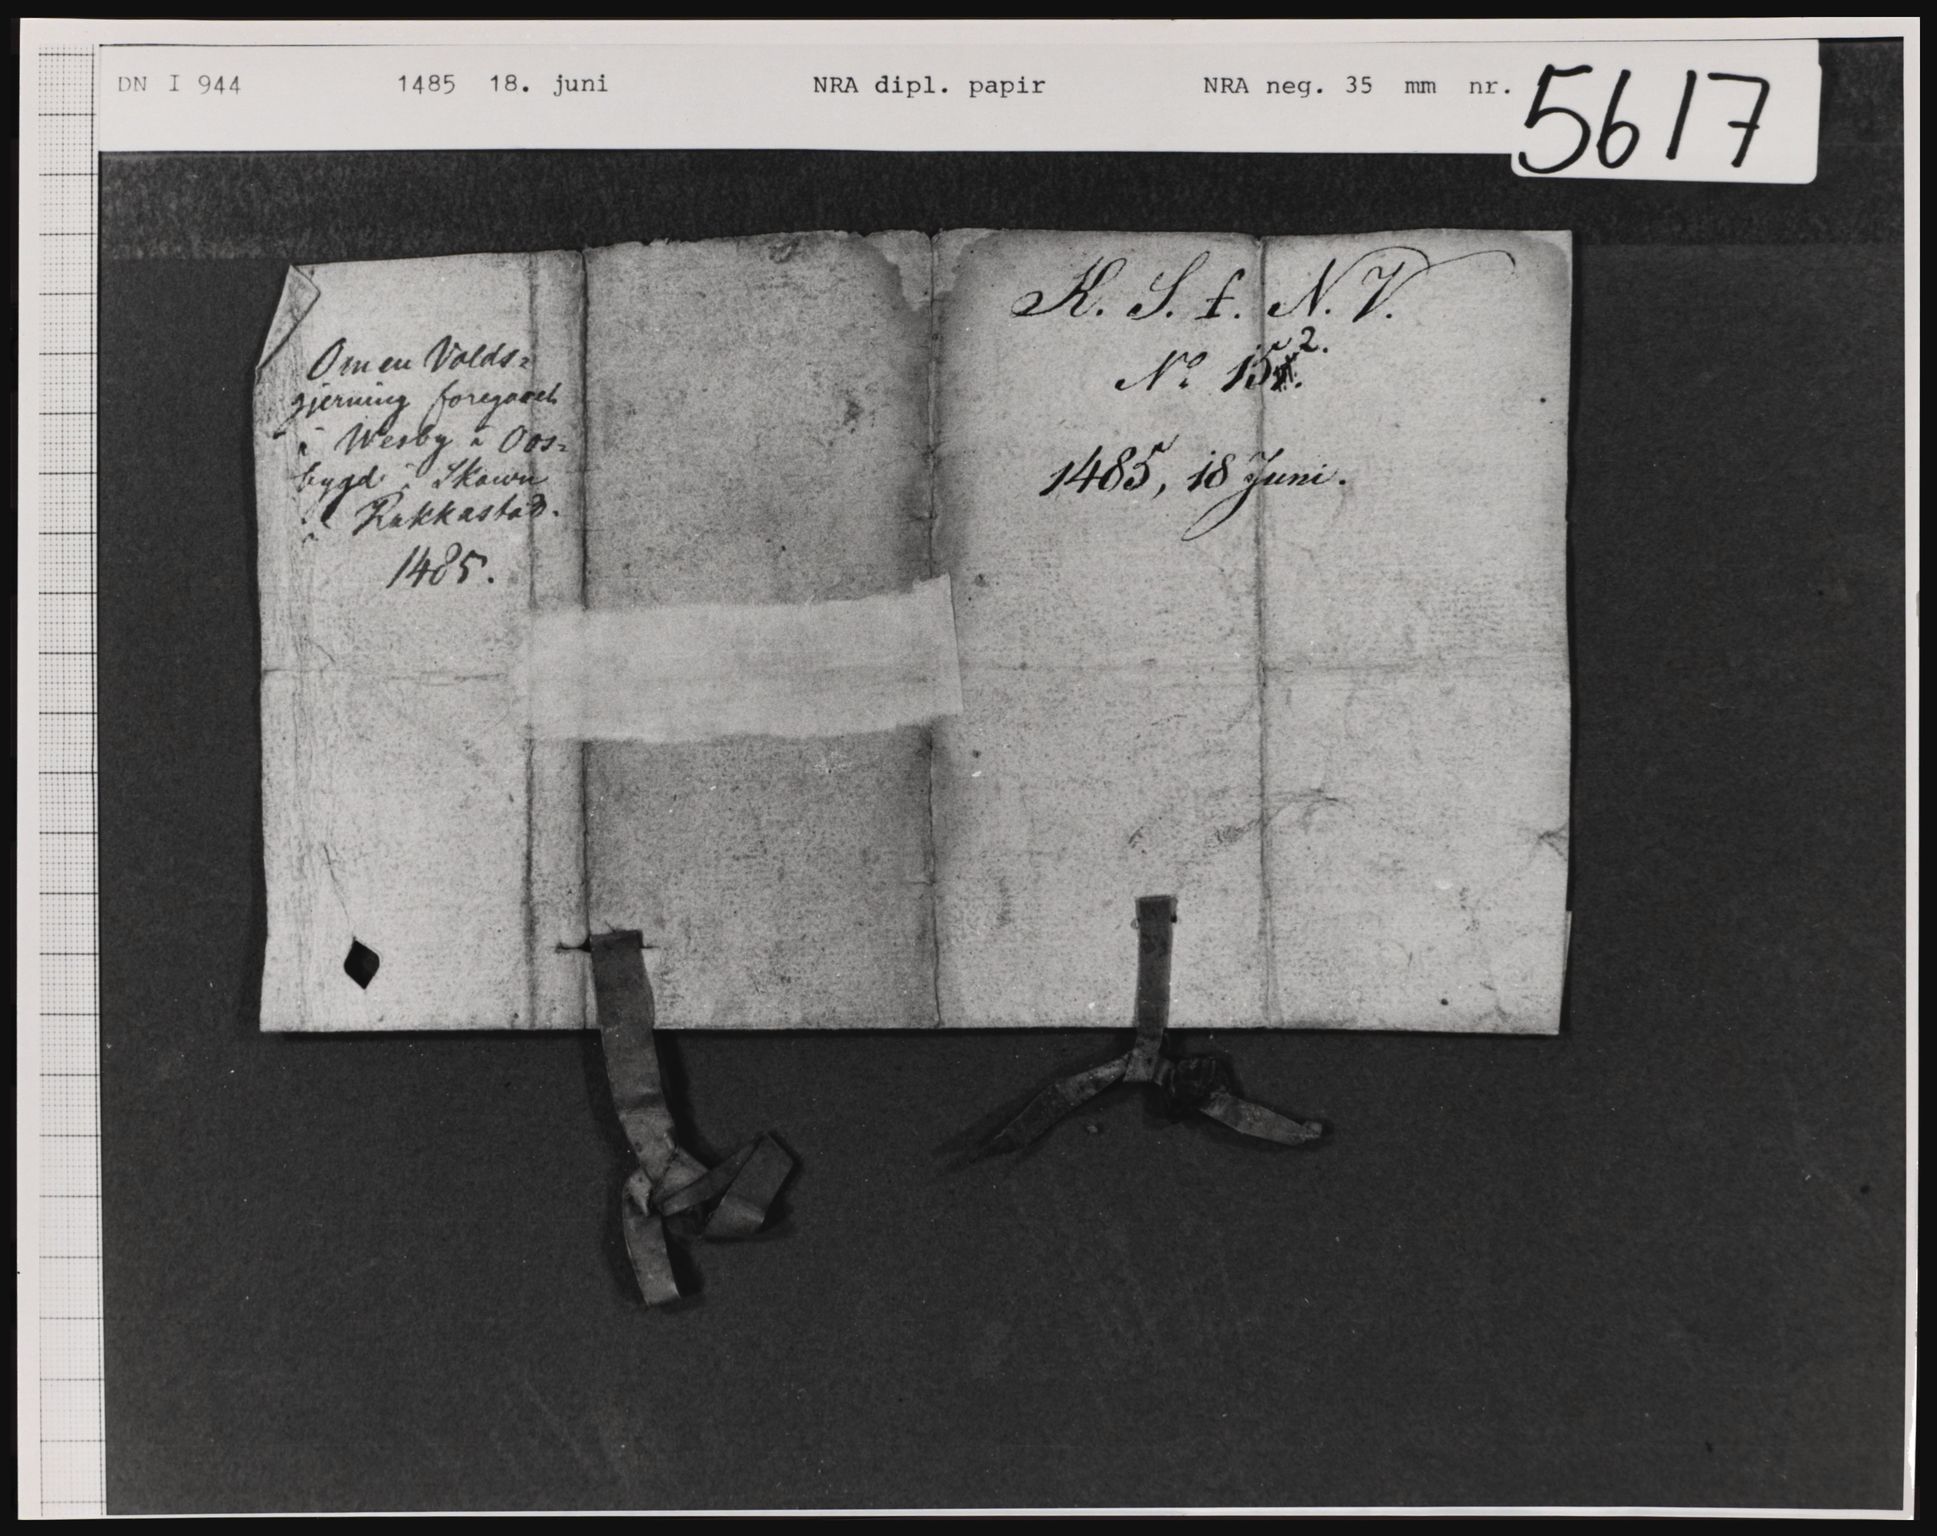 DN I 944 1485 18. juni NRA dipl. papir NRA neg. 35 mm nr. 5617
Om en Volds-
gjerning foregaaet
i Wesby i Oos-
bygd i Skown
i Rakkastad.
1485.
K. S. f. N. V.
No 15 2.
1485, 18 Juni.